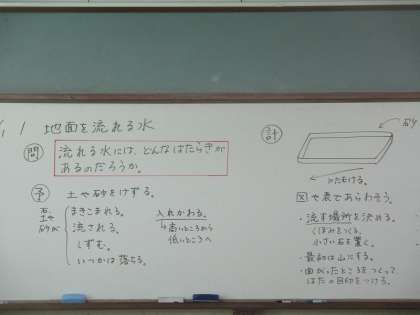 1 地面を流れる水
問
流れる水には、どんなはたらきが
あるのだろうか。
予 土や砂をけずる。
石
土や
砂が
まきこまれる。
流される。
しずむ。
いつかは落ちる。
入れかわる。
高いところから
低いところへ
計
砂
かたむける。
図や表であらわそう。
・流す場所を決める。
くぼみをつくる。
小さい石を置く。
・最初は山にする。
・曲がったところをつくって
はたの目印をつける。